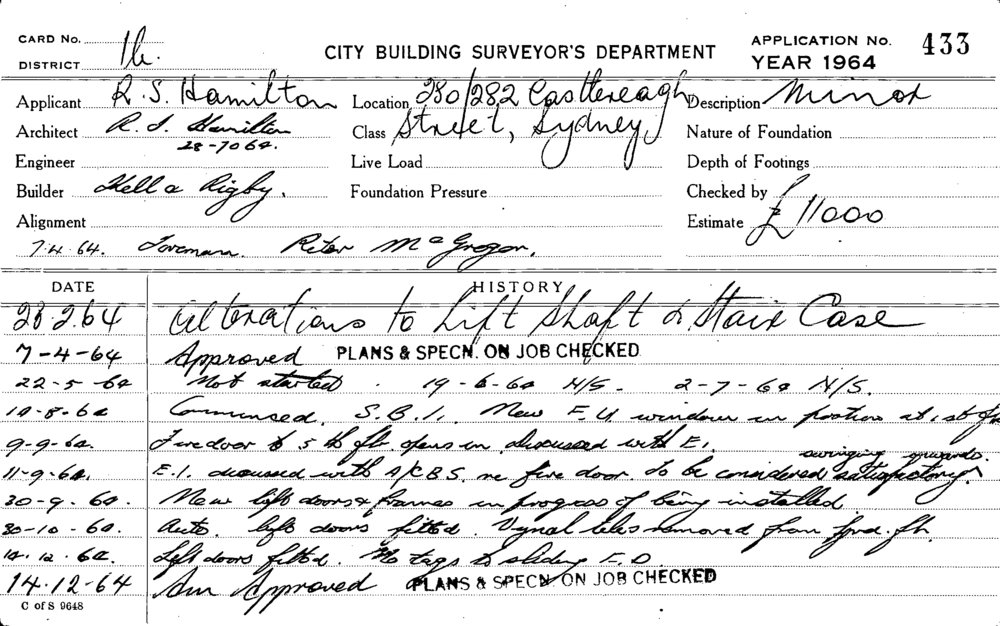 CARD No.
DISTRICT 1b.
CITY BUILDING SURVEYOR'S DEPARTMENT
APPLICATION No. 433
YEAR 1964
Applicant R. S. Hamilton
Location 280/282 Castlereagh
Description Minor
Architect R. S. Hamilton
28-7064.
Class Street, Sydney
Nature of Foundation
Engineer
Live Load
Depth of Footings
Builder Kell & Rigby.
Foundation Pressure
Checked by
Alignment
Estimate £11000
7.4.64. Foreman Peter McGregor.
DATE HISTORY
28.2.64 Alterations to Lift Shaft & Stair Case
7-4-64 Approved PLANS & SPECN. ON JOB CHECKED
22-5-64 Not started. 19-6-64 N/S. 2-7-64 N/S.
19-8-64 Commenced. S.B.I. New F.U. window in portion at 1st
9-9-64. Fire door to 5 th flr opens in, discussed with E.I.
swinging inwards.
11-9-64. E.I. discussed with A/CBS. re fire door. To be considered satisfactory
30-9-64. New lift doors & frames in progress of being installed
30-10-64. Auto. lift doors fitted. Vynal tiles removed from grd. flr.
14.12.64. Lift doors fitted. No tags to sliding F.D.
14.12-64 Am Approved PLANS & SPECN ON JOB CHECKED
C of S 9648